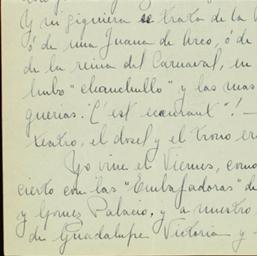 Y ni siquiera se trata de la
ó de una Juana de Arco, ó de
de la reina del Carnaval, en
hubo "chanchullo" y las mas
querias. C'est ecœurant"! —
teatro, el dosel y el trono er
Yo vine el Viernes, como
cierto con las "Embajadoras" de
y Gomez Palacio, y a nuestro
de Guadalupe Victoria y